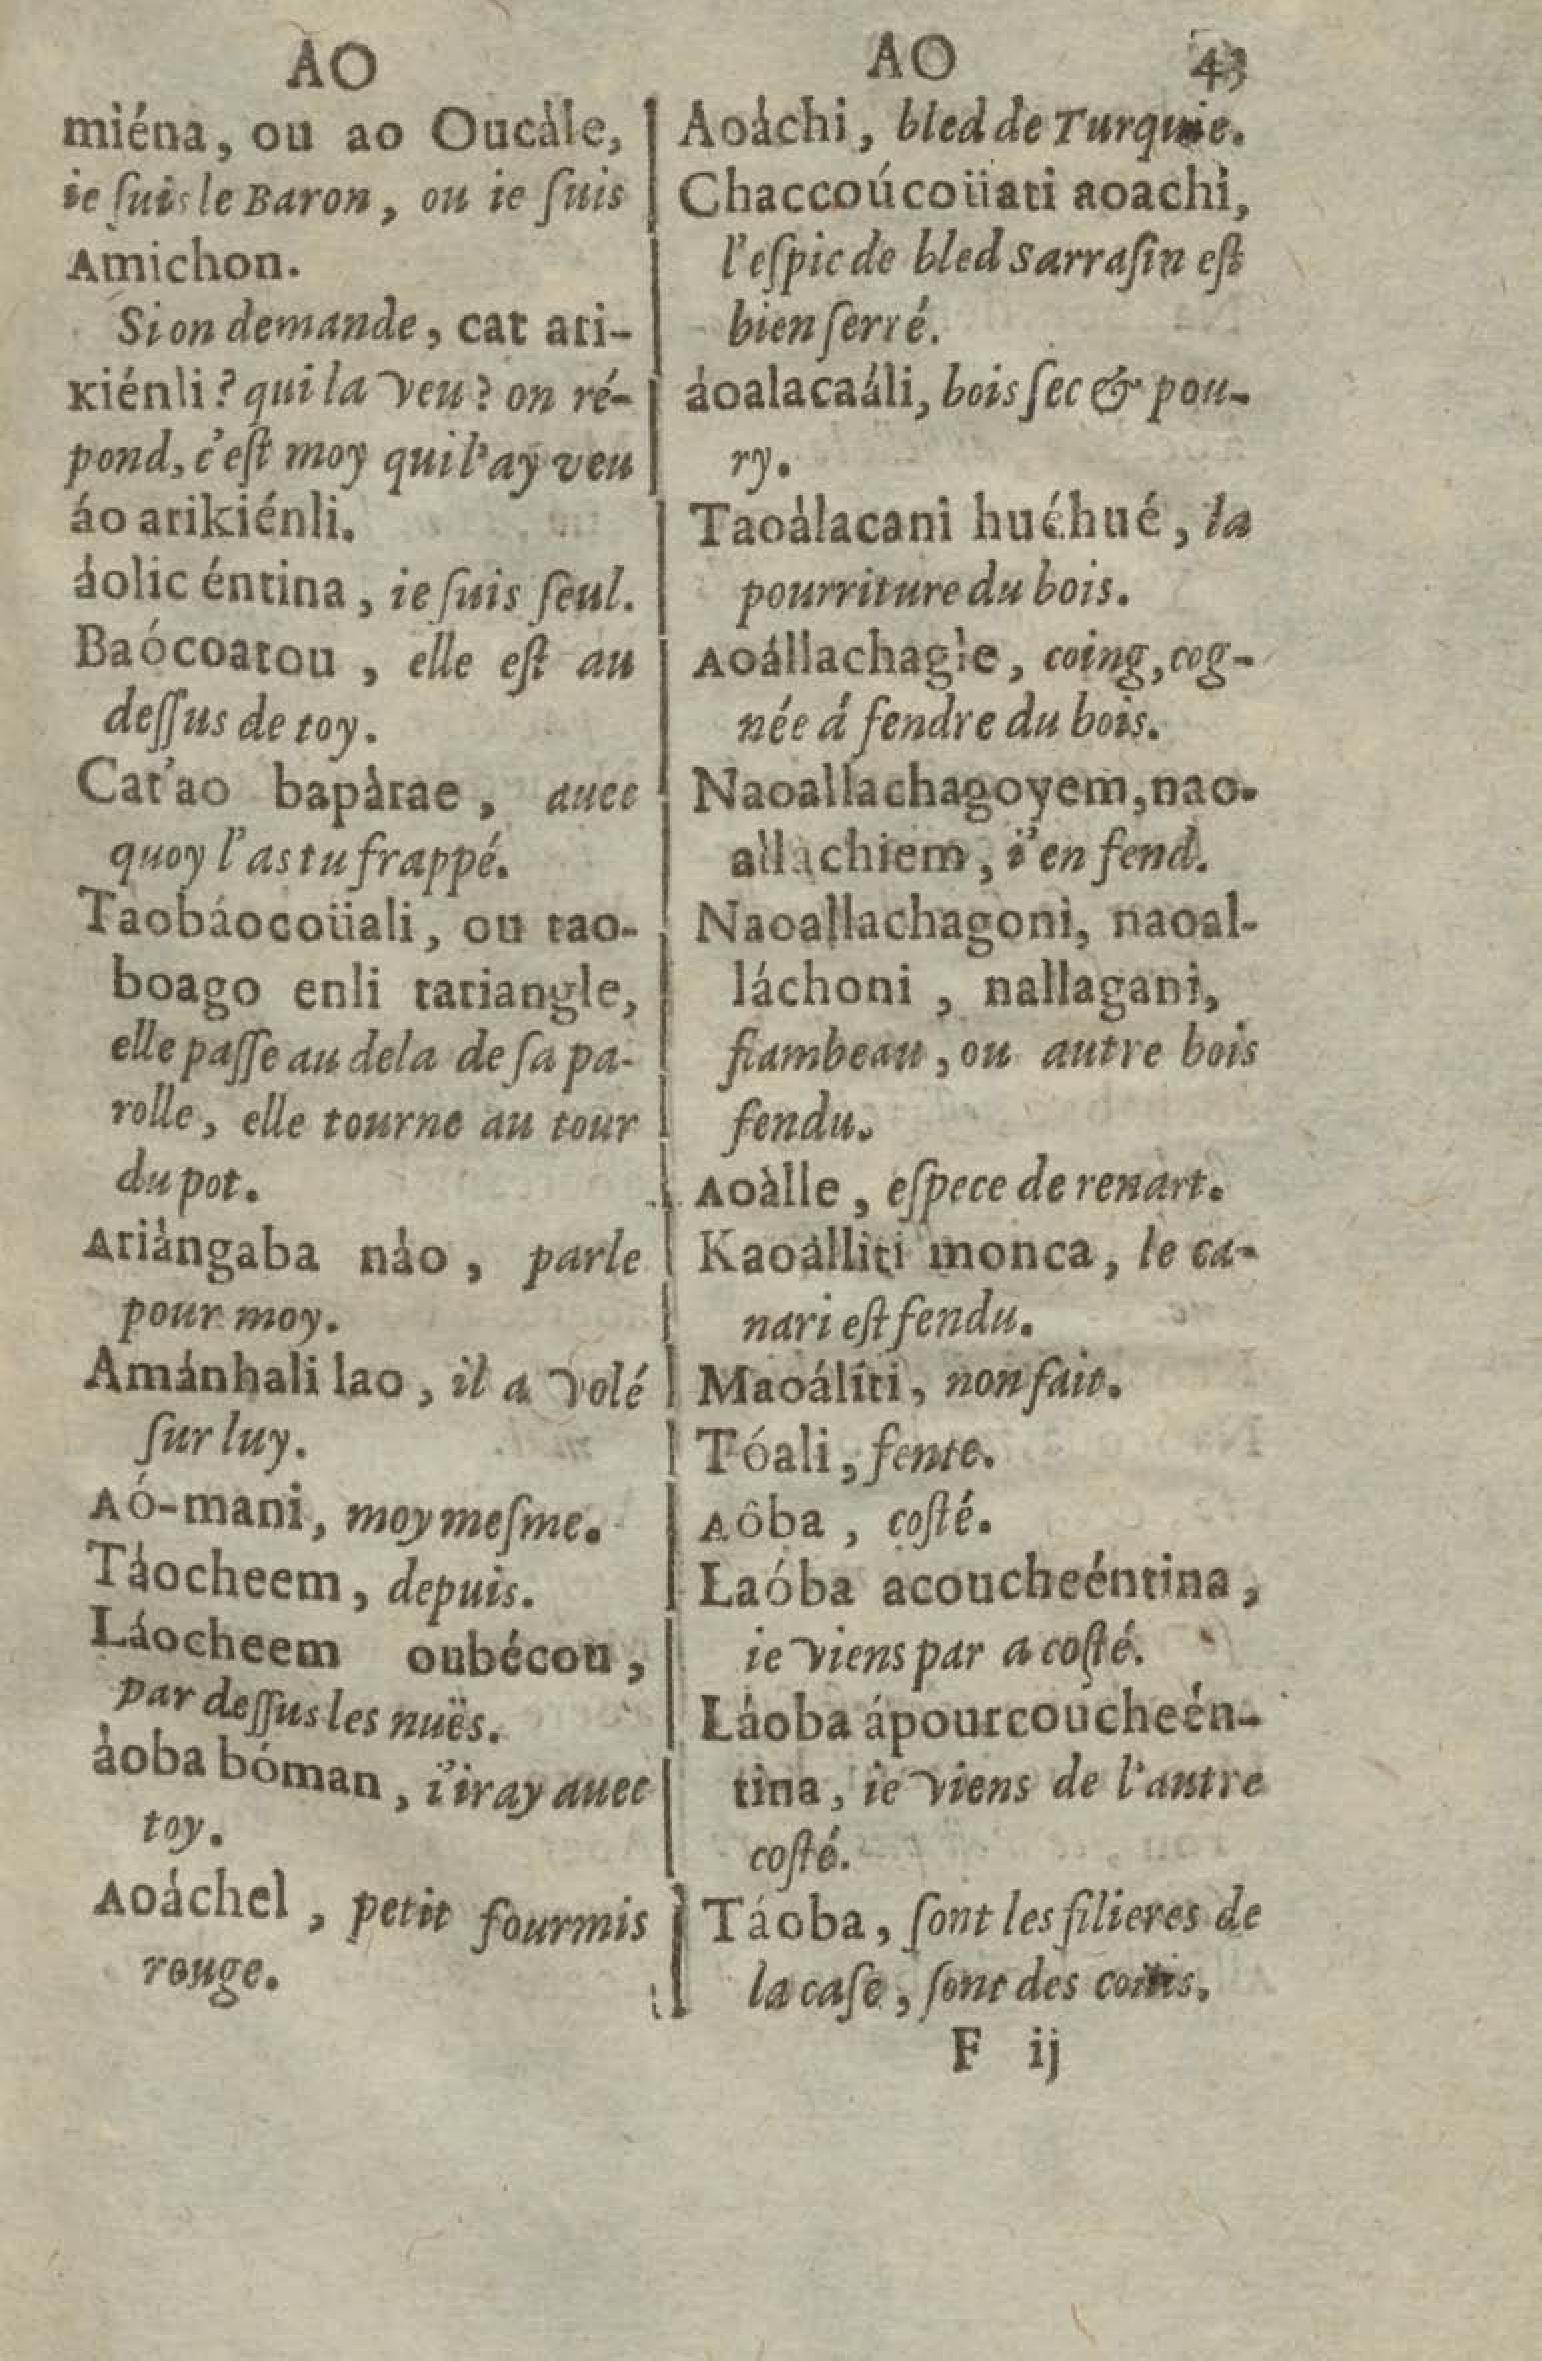 AO
miéna, ou ao Oucàle,
ie ſuis le Baron, ou ie ſuis
Amichon.
Si on demande, cat ati-
kiénli? qui la veu? on ré-
pond, c'eſt moy qui l'ay veu
áo atikiénli.
áolic éntina, ie ſuis ſeul.
Baócoatou, elle eſt au
deſſus de toy.
Cat'ao bapàtae, auec
quoy l'as tu frappé.
Taobáocoüali, ou tao-
boago enli tatiangle,
elle paſſe au dela de ſa pa-
rolle, elle tourne au tour
du pot.
Atiàngaba náo, parle
pour moy.
Amánhali lao, il a volé
ſur luy.
Aó-mani, moy meſme.
Táocheem, depuis.
Láocheem oubécou,
par deſſus les nuës.
àoba bóman, i'iray auec
toy.
Aoáchel, petit fourmis
rouge.
AO 43
Aoáchi, bled de Turquie.
Chaccoúcoüati aoachi,
l'eſpic de bled Sarraſin eſt
bien ſerré.
áoalacaáli, bois ſec & pou-
ry.
Taoàlacani huéhué, la
pourriture du bois.
Aoállachagle, coing, cog-
née á fendre du bois.
Naoallachagoyem, nao-
allachiem, i'en fend.
Naoallachagoni, naoal-
láchoni, nallagani,
flambeau, ou autre bois
fendu.
Aoàlle, eſpece de renart.
Kaoálliti monca, le ca-
nari eſt fendu.
Maoáliti, non fait.
Tóali, fente.
Aôba, coſté.
Laóba acoucheéntina,
ie viens par a coſté.
Láoba ápourcoucheén-
tina, ie viens de l'autre
coſté.
Táoba, ſont les filieres de
la caſe, ſont des
F ij